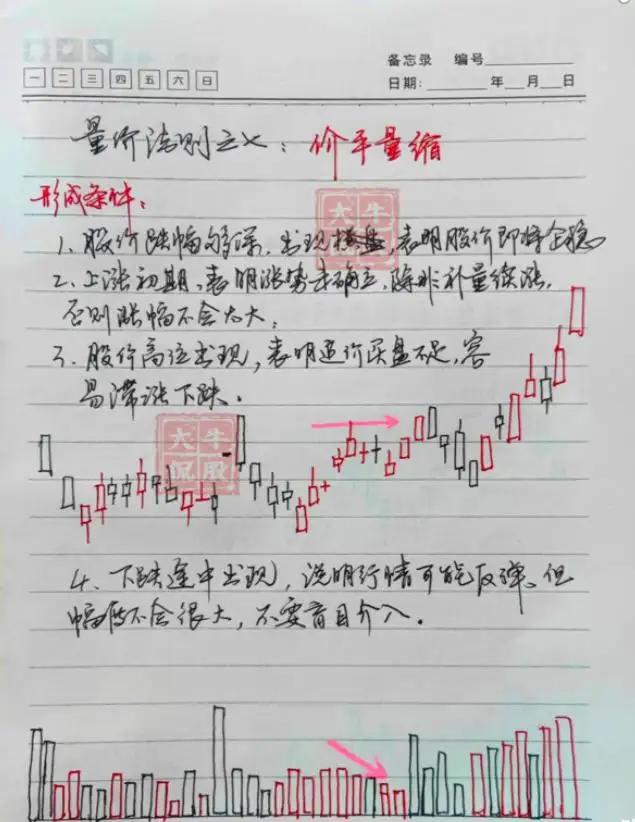 备忘录 编号
一 二 三 四 五 六 日
日期: 年 月 日
量价法则之七：价平量缩
形成条件：
大牛
侃股
1、股价跌幅够深，出现横盘，表明股价即将企稳
2、上涨初期，表明涨势未确立，除非补量续涨，
否则涨幅不会太大；
3、股价高位出现，表明追价买盘不足，容
易滞涨下跌．
大牛
侃股
4、下跌途中出现，说明行情可能反弹。但
幅度不会很大，不要盲目介入．